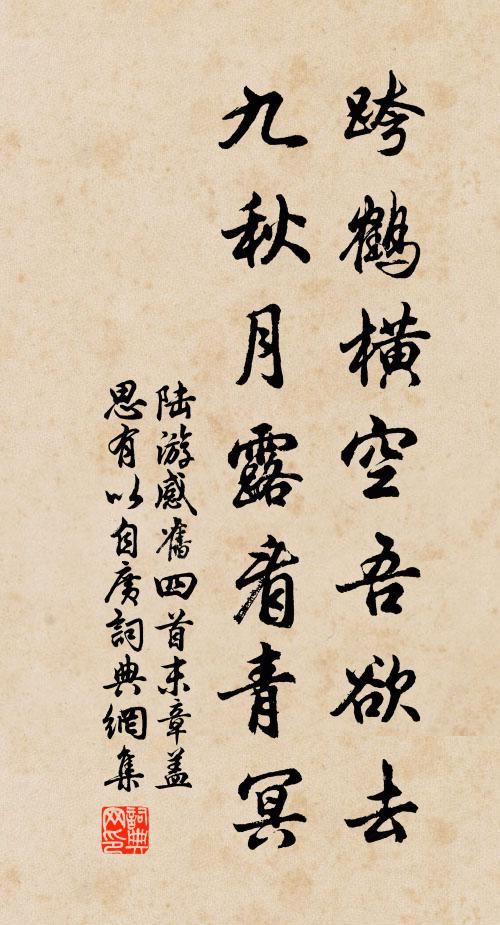 跨鹤橫空吾欲去
九秋月露看青冥
陆游感舊四首末章盖
思有以自广詞典網集
詞典网印